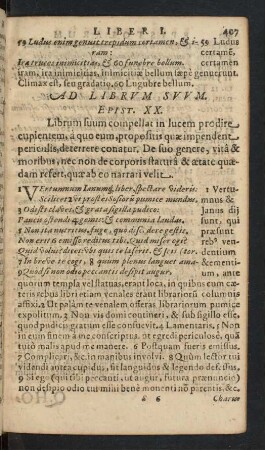 LIBER I. 407
59 Ludus enim genuit trepidum certamen, & i-
ram:
Ira truces inimicitias, & 60 funebre bellum.
59 Ludus
certamē,
certamen
iram, ira inimicitias, inimicitiæ bellum sæpè genuerunt.
Climax est, seu gradatio, 60 Lugubre bellum.
AD LIBRVM SVVM.
EPIST. XX.
Librum suum compellat in lucem prodire
cupientem, à quo eum, propositis quæ impendent
periculis, deterrere conatur. De suo genere, vitâ &
moribus, nec non de corporis staturâ & ætate quæ-
dam refert, quæ ab eo narrari velit.
1 VErtumnum Ianumq́; liber, spectare videris:
Scilicet vt prostes Sosiorum pumice mundus.
3 Odisti claves, & grata sigilla pudico:
Paucis
& communia laudas.
5 Non ita nutritus, fuge, quò discedere gestis.
Non erit 6 emisso reditus tibi. Quid miser egi?
Quid volui? dices vbi quis te læserit, & scis
7 In breve te cogi, 8 quum plenus languet amator.
9 Quòd si non odio peccantis desipit augur,
1 Vertu-
mnus &
Janus dij
sunt, qui
præsunt
reb9 ven-
dentium
& ementi-
um, ante
quorum templa vel statuas, erant loca, in quibus cum cæ-
teris rebus libri etiam venales erant librariorũ columnis
affixi. 2 Ut palàm te venalem osseras librariorum pumice
expolitum. 3 Non vis domi contineri, & sub sigillo esse,
quod judicum gratius esse consuevit. 4 Lamentaris, 5 Non
in eum finem à me conscriptus, ut egredi periculosè, quã
tutò malis apud me manere. 6 Postquam fueris emissus,
7 Complicari, &c. in manibus involvi. 8 Quùm lector tui
videndi antea cupidus, sit languidus è legendo defessus,
9 Et ego (qui tibi peccanti, ut augur, futura prænuncio)
non desipio odio tui mihi bene monenti nõ parentis, &c.
6 6 Charus